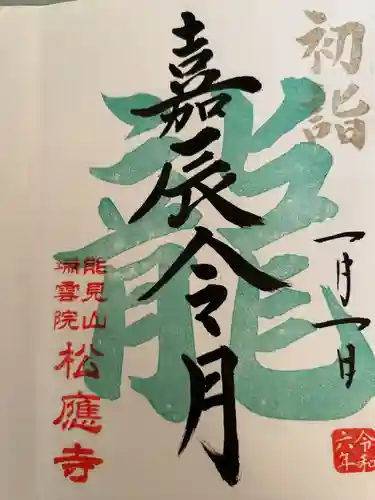 初詣
一月一日
令和
六年
嘉辰令月
龍
能見山
瑞雲院
松應寺